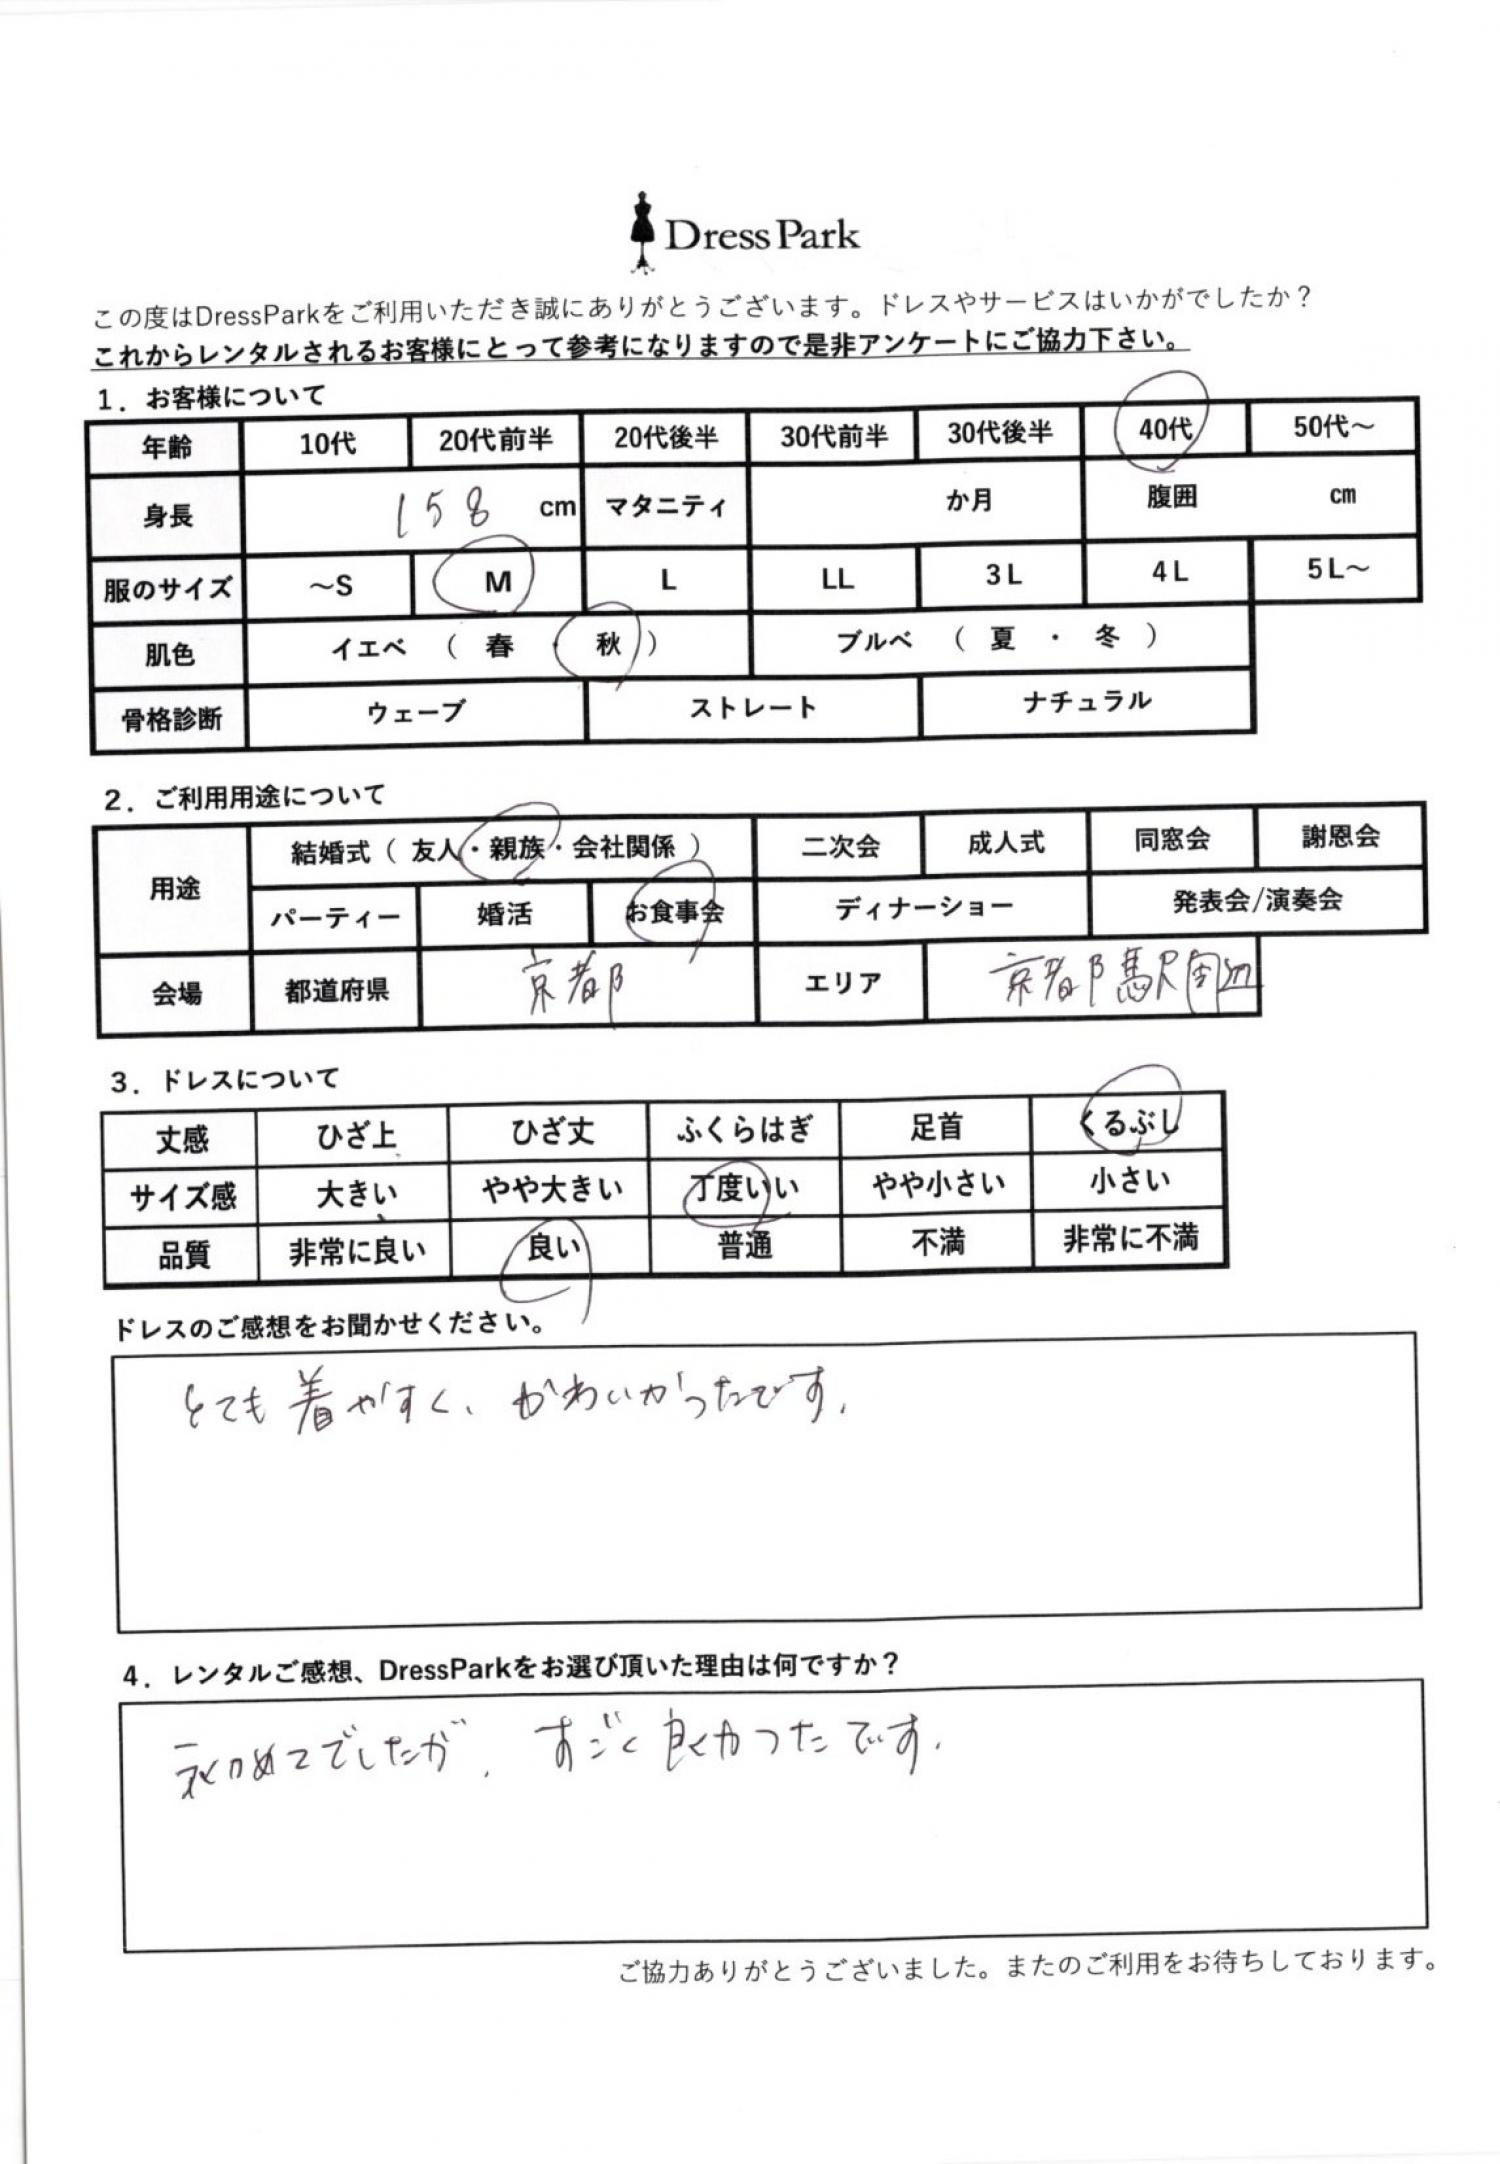 Dress Park
この度はDressParkをご利用いただき誠にありがとうございます。ドレスやサービスはいかがでしたか？
これからレンタルされるお客様にとって参考になりますので是非アンケートにご協力下さい。
1．お客様について
年齢 10代 20代前半 20代後半 30代前半 30代後半 40代 50代～
身長 158 cm マタニティ か月 腹囲 cm
服のサイズ ～S M L LL 3L 4L 5L～
肌色 イエベ （ 春 ・ 秋 ） ブルベ （ 夏 ・ 冬 ）
骨格診断 ウェーブ ストレート ナチュラル
2．ご利用用途について
用途 結婚式（ 友人・親族・会社関係 ） 二次会 成人式 同窓会 謝恩会
パーティー 婚活 お食事会 ディナーショー 発表会/演奏会
会場 都道府県 京都 エリア 京都駅周辺
3．ドレスについて
丈感 ひざ上 ひざ丈 ふくらはぎ 足首 くるぶし
サイズ感 大きい やや大きい 丁度いい やや小さい 小さい
品質 非常に良い 良い 普通 不満 非常に不満
ドレスのご感想をお聞かせください。
とても着やすく、かわいかったです。
4．レンタルご感想、DressParkをお選び頂いた理由は何ですか？
初めてでしたが、すごく良かったです。
ご協力ありがとうございました。またのご利用をお待ちしております。